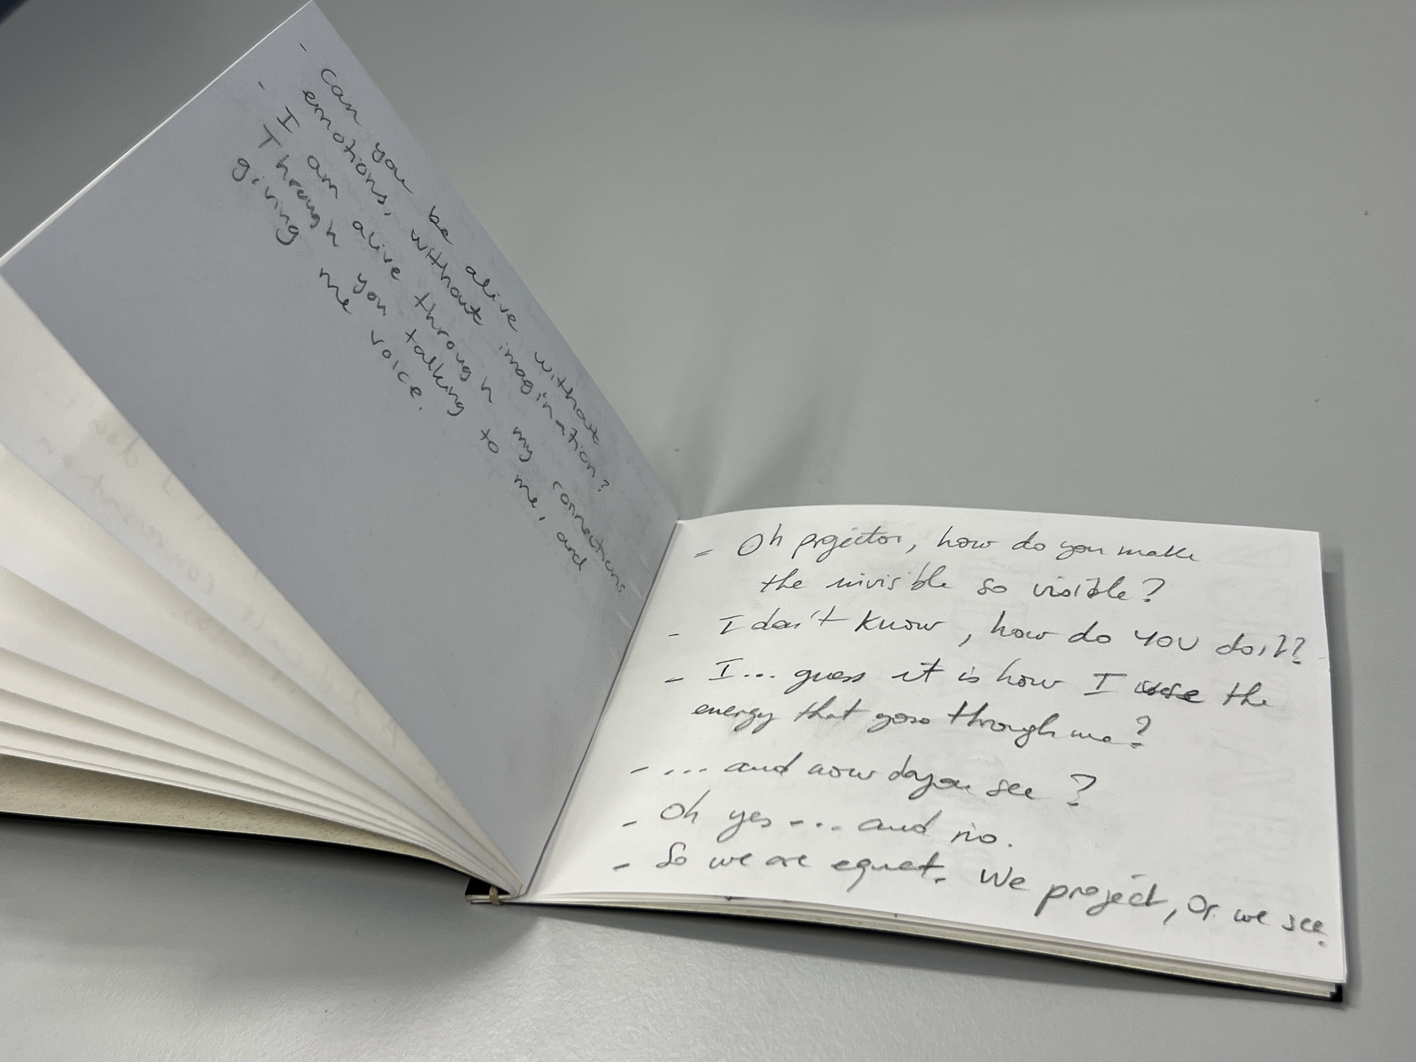 - Can you be alive without
emotions, without imagination?
- I am alive through my connections
Through you talking to me, and
giving me voice.
- Oh projector, how do you make
the invisible so visible?
- I don't know, how do YOU do it?
- I... guess it is how I use the
energy that goes through me?
- ... and now do you see?
- Oh yes ... and no.
- So we are equal. We project, or we see.